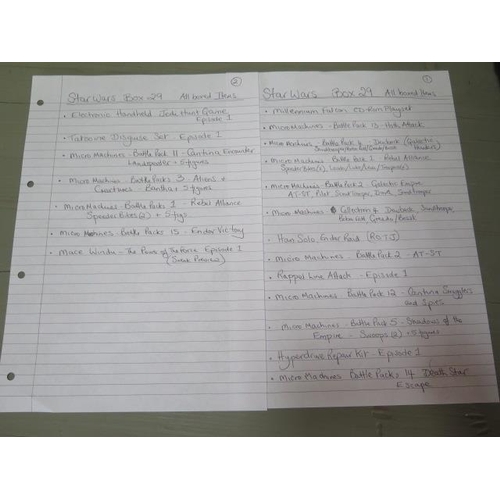 ②
Star Wars Box 29 All boxed Items
• Electronic Handheld Jedi Hunt Game
Episode 1
• Tatooine Disguise Set Episode 1
• Micro Machines - Battle Pack 11 - Cantina Encounter
Landspeeder + 5 figures
• Micro Machines - Battle Packs 3 Aliens &
Creatures - Bantha + 5 figures
• Micro Machines - Battle Packs 1 - Rebel Alliance
Speeder Bikes (2) + 5 figs
• Micro Machines Battle Packs 15 - Endor Victory
• Mace Windu - The Power of The Force Episode 1
(Sneak Preview)
①
Star Wars Box 29 All boxed Items
• Millennium Falcon CD-Rom Playset
• Micro Machines - Battle Pack 13 Hoth Attack
• Micro Machines Battle Pack 4 Dewback
• Micro Machines Battle Pack 1 Rebel Alliance
Speeder Bikes (2)
• Micro Machines - Battle Pack 2 Galactic Empire
AT-ST Pilot, Scout Trooper, Darth, Sandtrooper
• Micro Machines Collection 4 Dewback, Sandtrooper
• Han Solo, Endor Raid (ROTJ)
• Micro Machines Battle Pack 2 - AT-ST
• Rappel Line Attach - Episode 1
• Micro Machines Battle Pack 12 - Cantina Smugglers
and Spies
• Micro Machines - Battle Pack 5 - Shadows of the
Empire - Swoops (2) + 5 figures
• Hyperdrive Repair Kit - Episode 1
• Micro Machines Battle Packs 14 Death Star
Escape